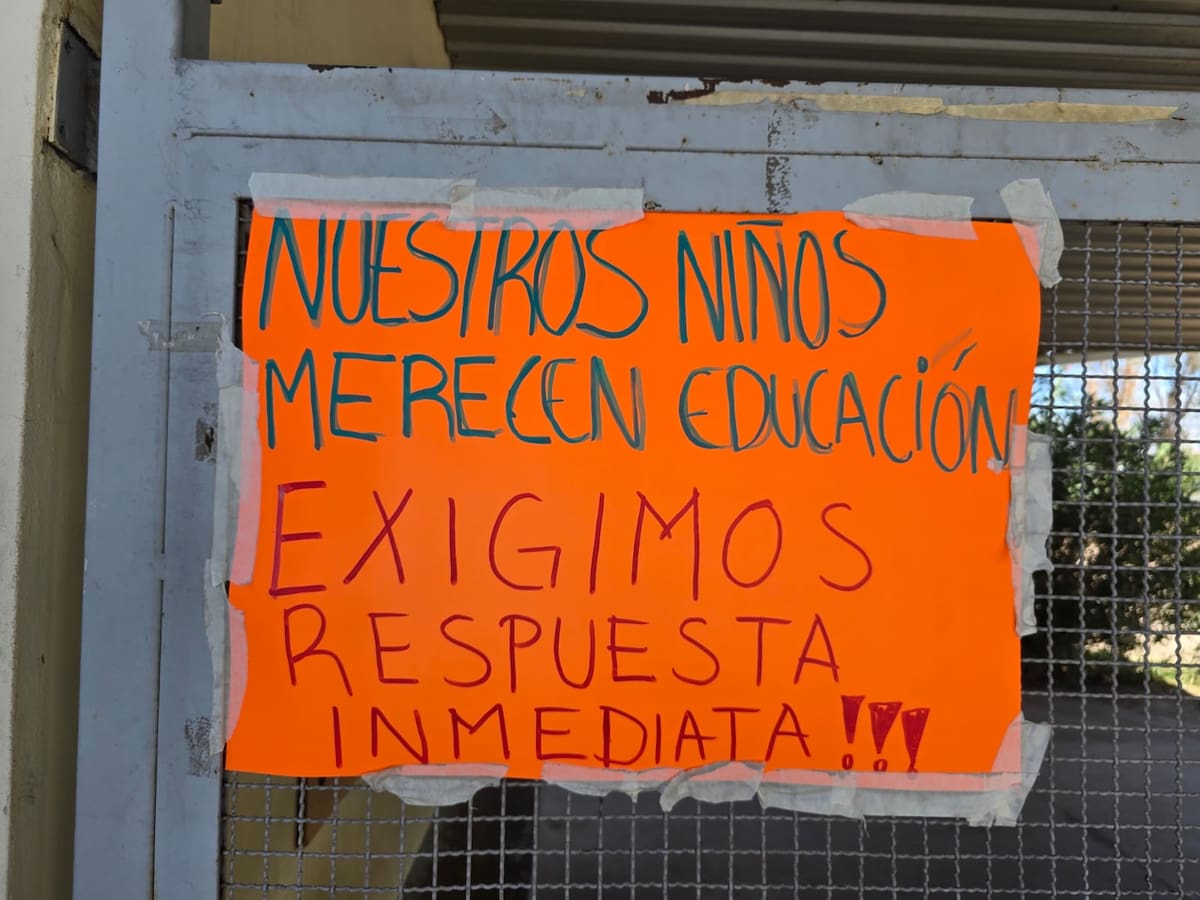 NUESTROS NIÑOS
MERECEN EDUCACIÓN
EXIGIMOS
RESPUESTA
INMEDIATA !!!